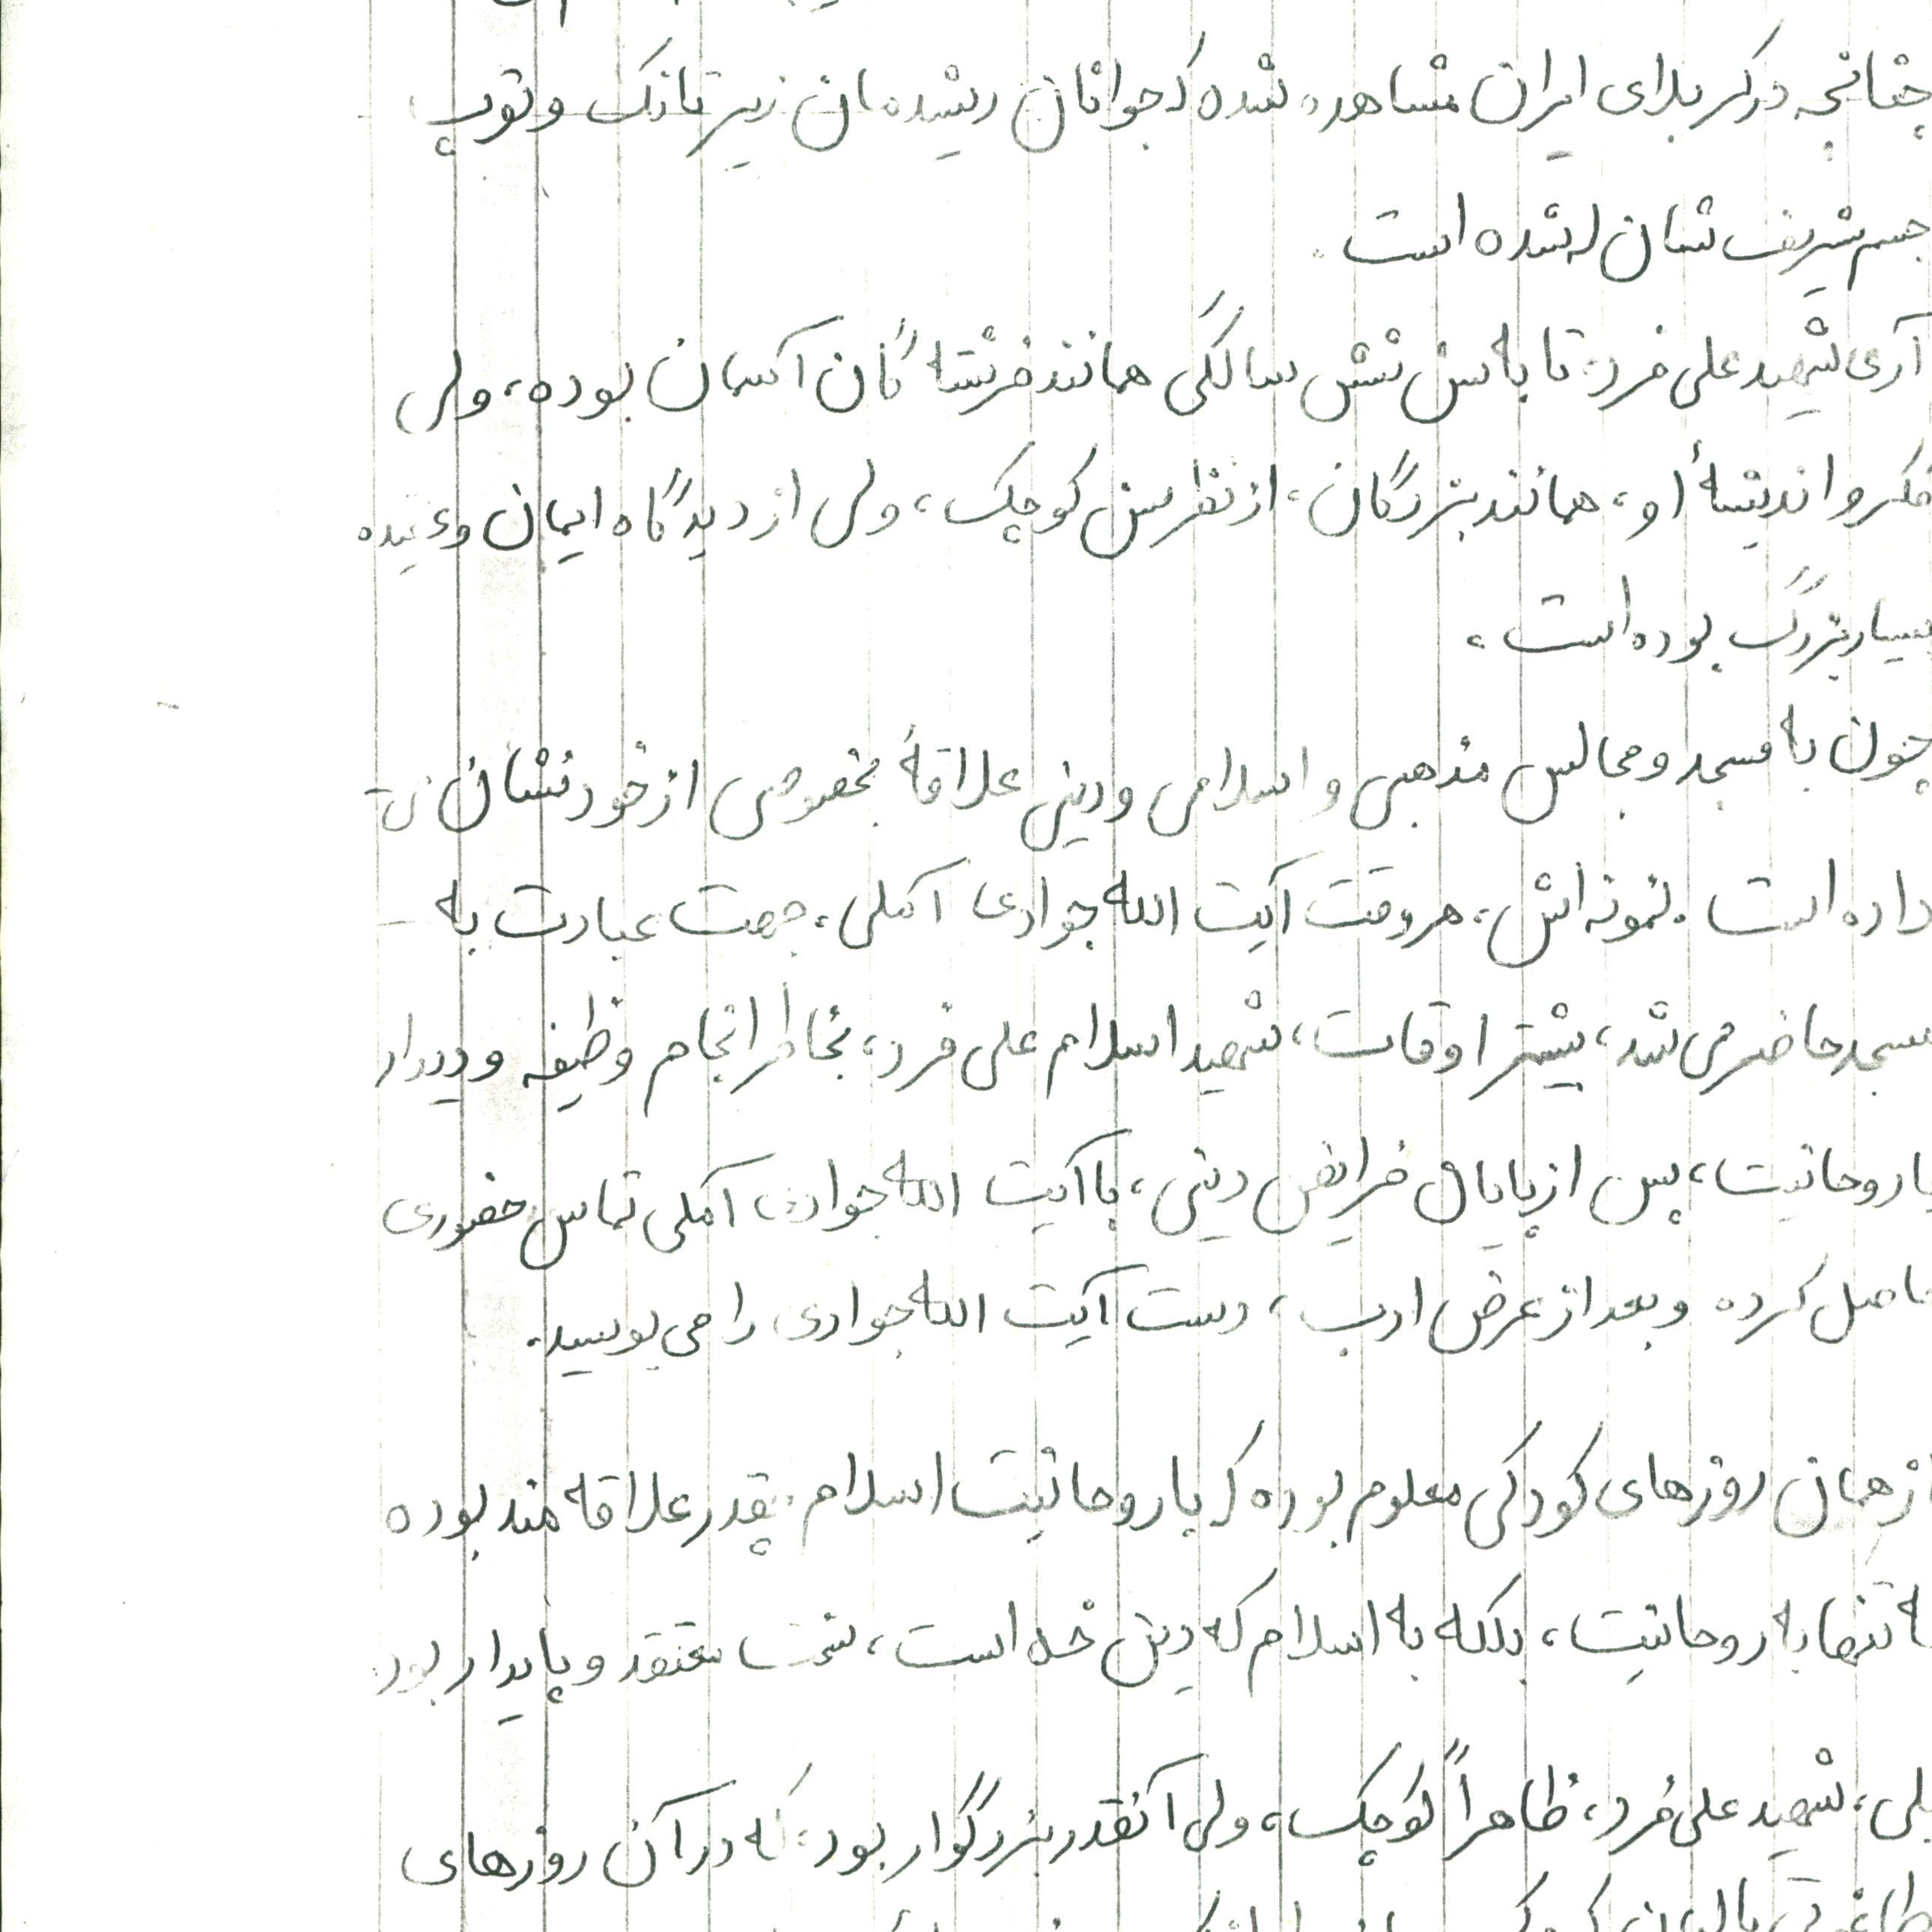 چنانچه در کربلای ایران مشاهده شده که جوانان رشیدمان زیر تانک و توپ
جسم شریف شان له شده است.
آری شهید علی فرد، تا به سن شش سالگی همانند فرشته گان آسمان بوده، ولی
فکر و اندیشهٔ او، همانند بزرگان، از نظر سن کوچک، ولی از دیدگاه ایمان و عقیده
بسیار بزرگ بوده است،
چون به مسجد و مجالس مذهبی و اسلامی و دینی علاقهٔ مخصوصی از خود نشان می
داده است. نمونه اش، هر وقت آیت الله جوادی آملی، جهت عبادت به
مسجد حاضر می شد، بیشتر اوقات، شهید اسلام علی فرد، بخاطر انجام وظیفه و دیدار
با روحانیت، پس از پایان فرایض دینی، با آیت الله جوادی آملی تماس حضوری
حاصل کرده و بعد از عرض ادب، دست آیت الله جوادی را می بوسید.
از همان روزهای کودکی معلوم بوده که با روحانیت اسلام چقدر علاقه مند بوده
نه تنها به روحانیت، بلکه به اسلام که دین خداست، سخت معتقد و پایدار بود
بلی، شهید علی فرد، ظاهراً کوچک، ولی آنقدر بزرگوار بود، که در آن روزهای